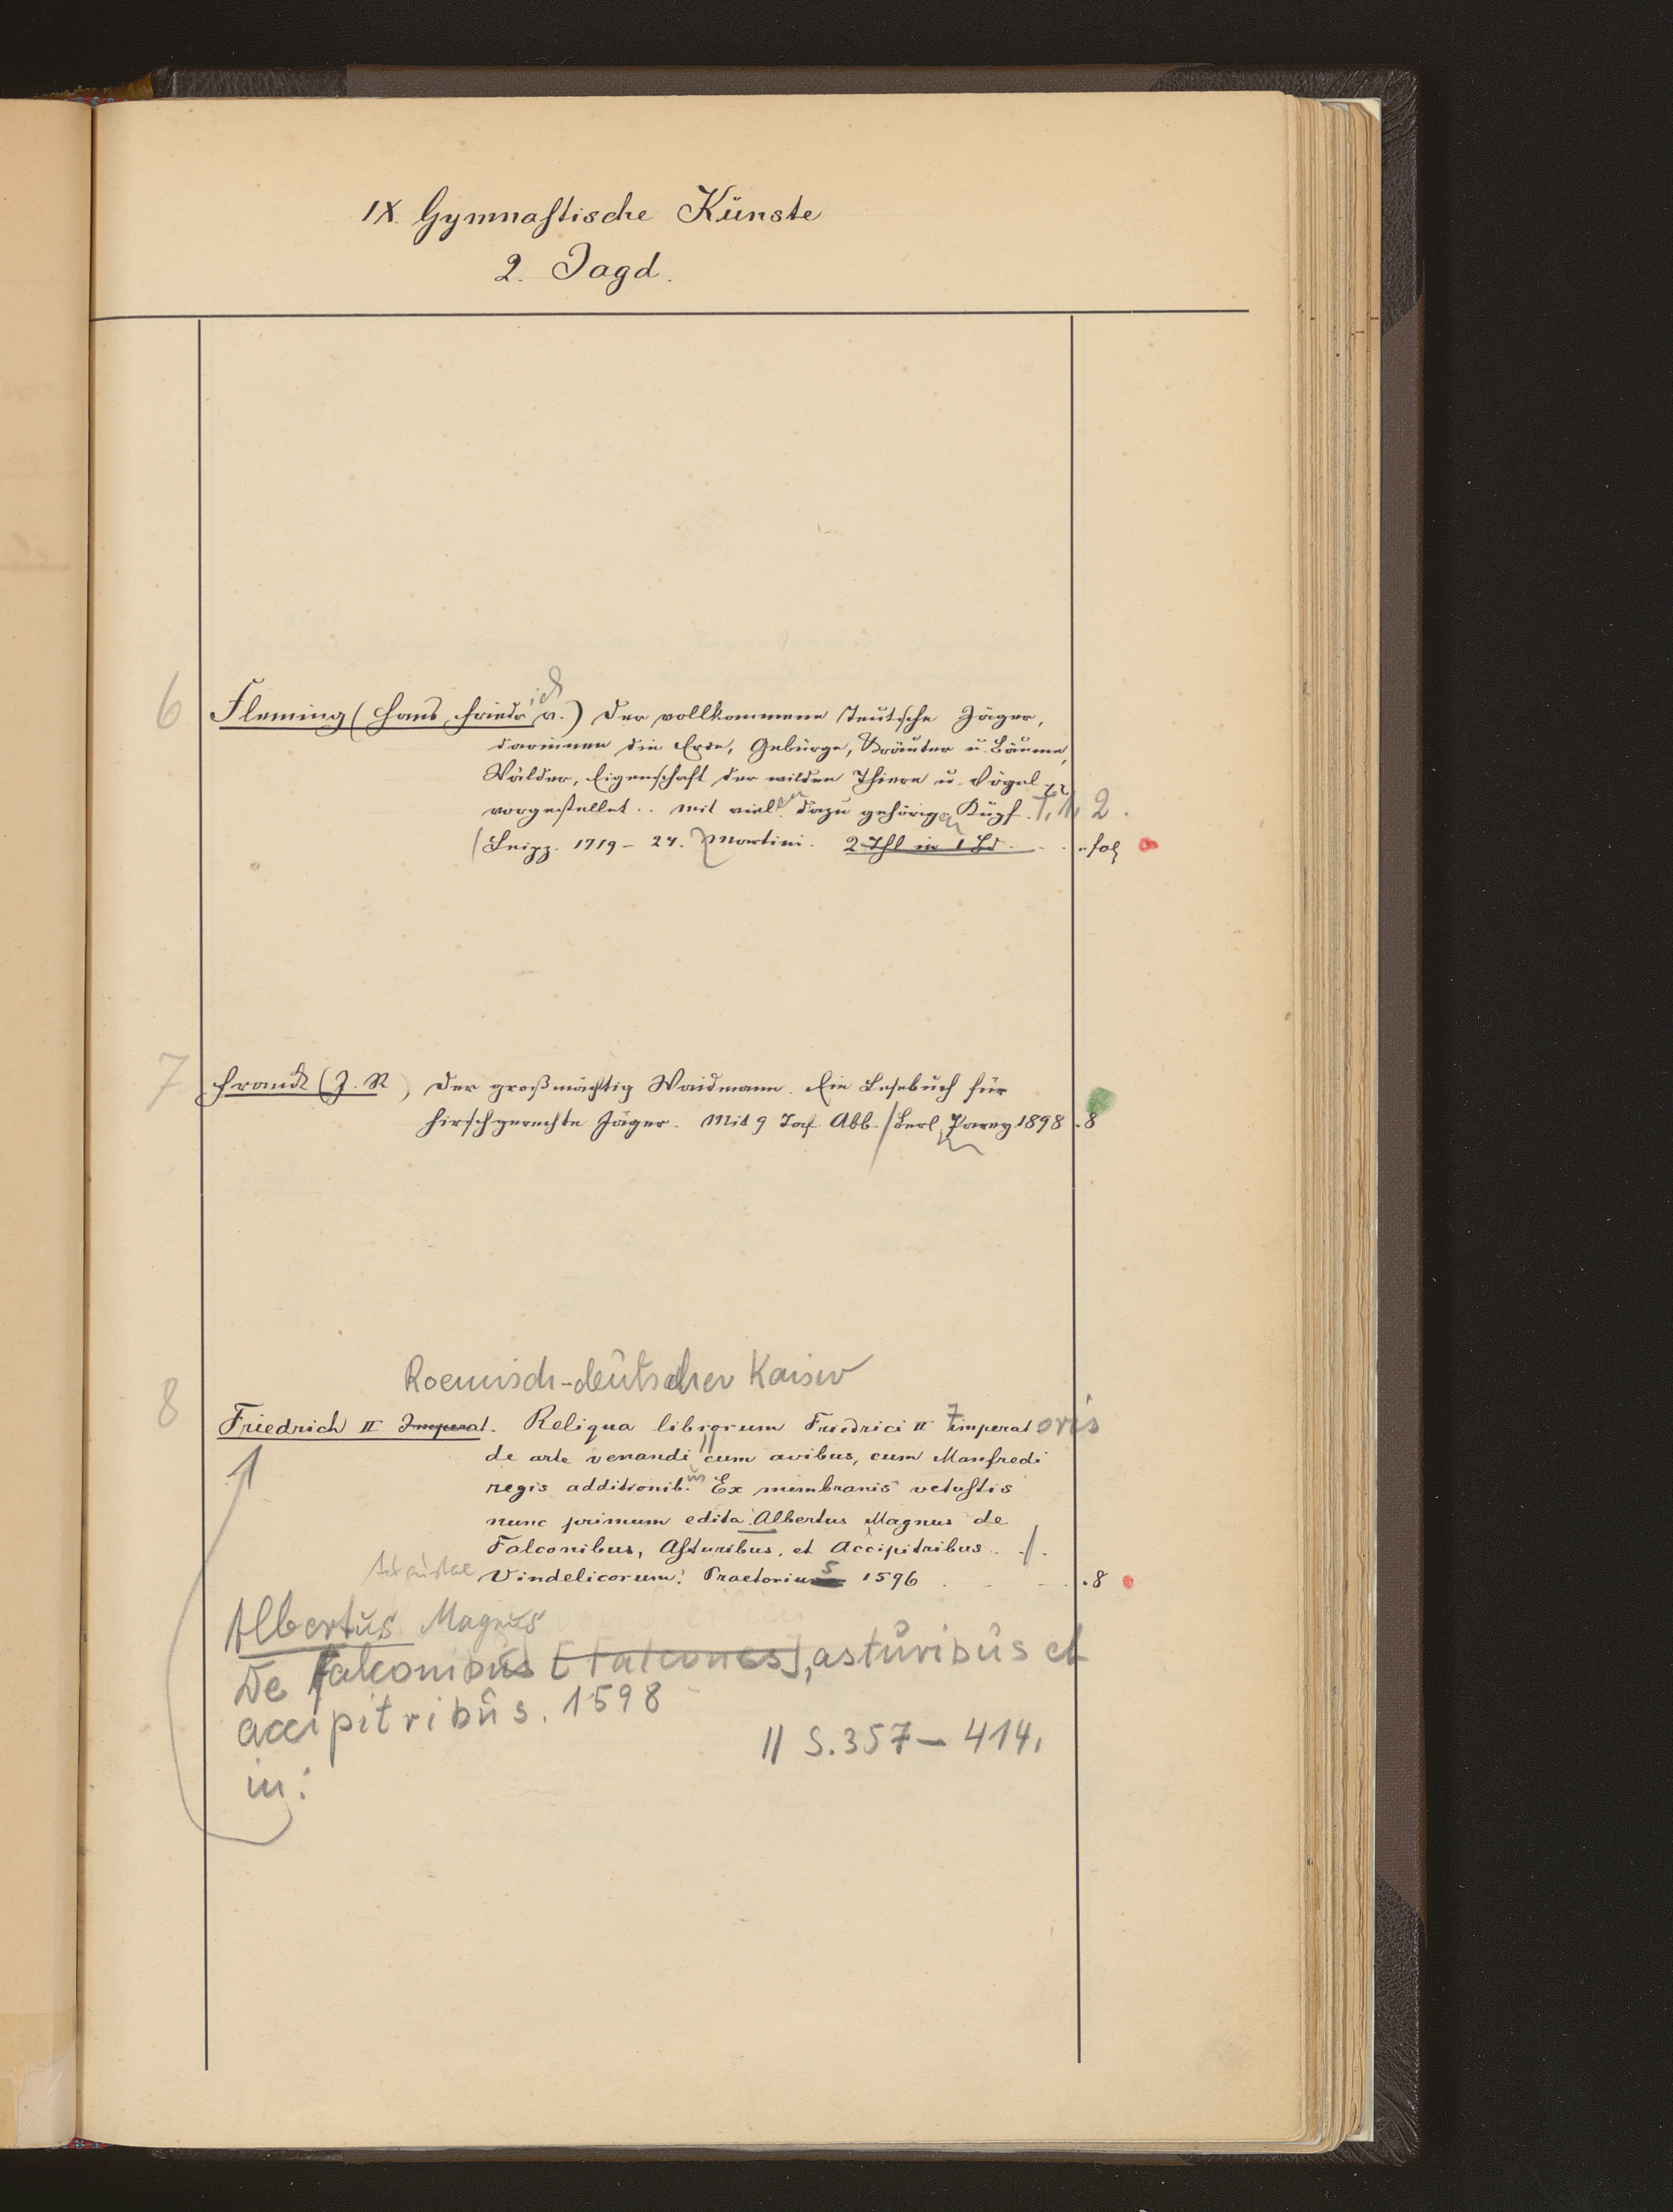 IX. Gymnastische Künste
2. Jagd.
6 Fleming (Hans Friedrich v.) Der vollkommene Teutsche Jäger,
darinnen die Erde, Gebürge, Kräuter u. Bäume,
Wälder, Eigenschaft der wilden Thiere u. Vögel
vorgestellet.. Mit vielen dazu gehörigen Kupf. T. 1, 2.
(Leipz. 1719-24. Martini. 2 Thl in 1 Bd . . . fol
7 Franck (J. R) Der großmächtig Waidmann. Ein Lesebuch für
hirschgerechte Jäger. Mit 9 Taf. Abb. / Berl. Parey 1898 . 8
Roemisch-deutscher Kaiser
8 Friedrich II Imperat. Reliqua librorum Friedrici II Imperatoris
de arte venandi cum avibus, cum Manfredi
regis additionibus Ex membranis vetustis
nunc primum edita. Albertus Magnus de
Falconibus, Asturibus, et Accipitribus . . /.
Augustae Vindelicorum: Praetorius 1596 . . . 8
Albertus Magnus
De falconibus [Falcones], asturibus et
accipitribus. 1598
// S. 357-414.
in: